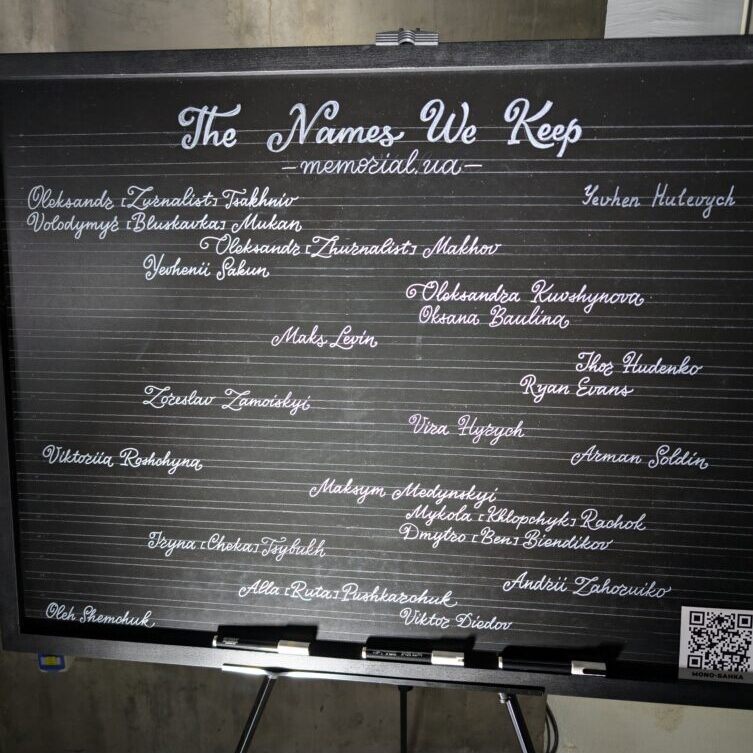 The Names We Keep
-memorial.ua-
Oleksandr [Zurnalist] Tsakhniv
Yevhen Hulevych
Volodymyr [Bluskavka] Mukan
Oleksandr [Zhurnalist] Makhov
Yevhenii Sakun
Oleksandra Kuvshynova
Oksana Baulina
Maks Levin
Ihor Hudenko
Ryan Evans
Zoreslav Zamoiskyi
Vira Hyrych
Viktoriia Roshchyna
Arman Soldin
Maksym Medynskyi
Mykola [Khlopchyk] Rachok
Dmytro [Ben] Biendikov
Iryna [Cheka] Tsybukh
Andrii Zahoruiko
Alla [Ruta] Pushkarchuk
Oleh Shemchuk
Viktor Diedov
MONO-БАНКА